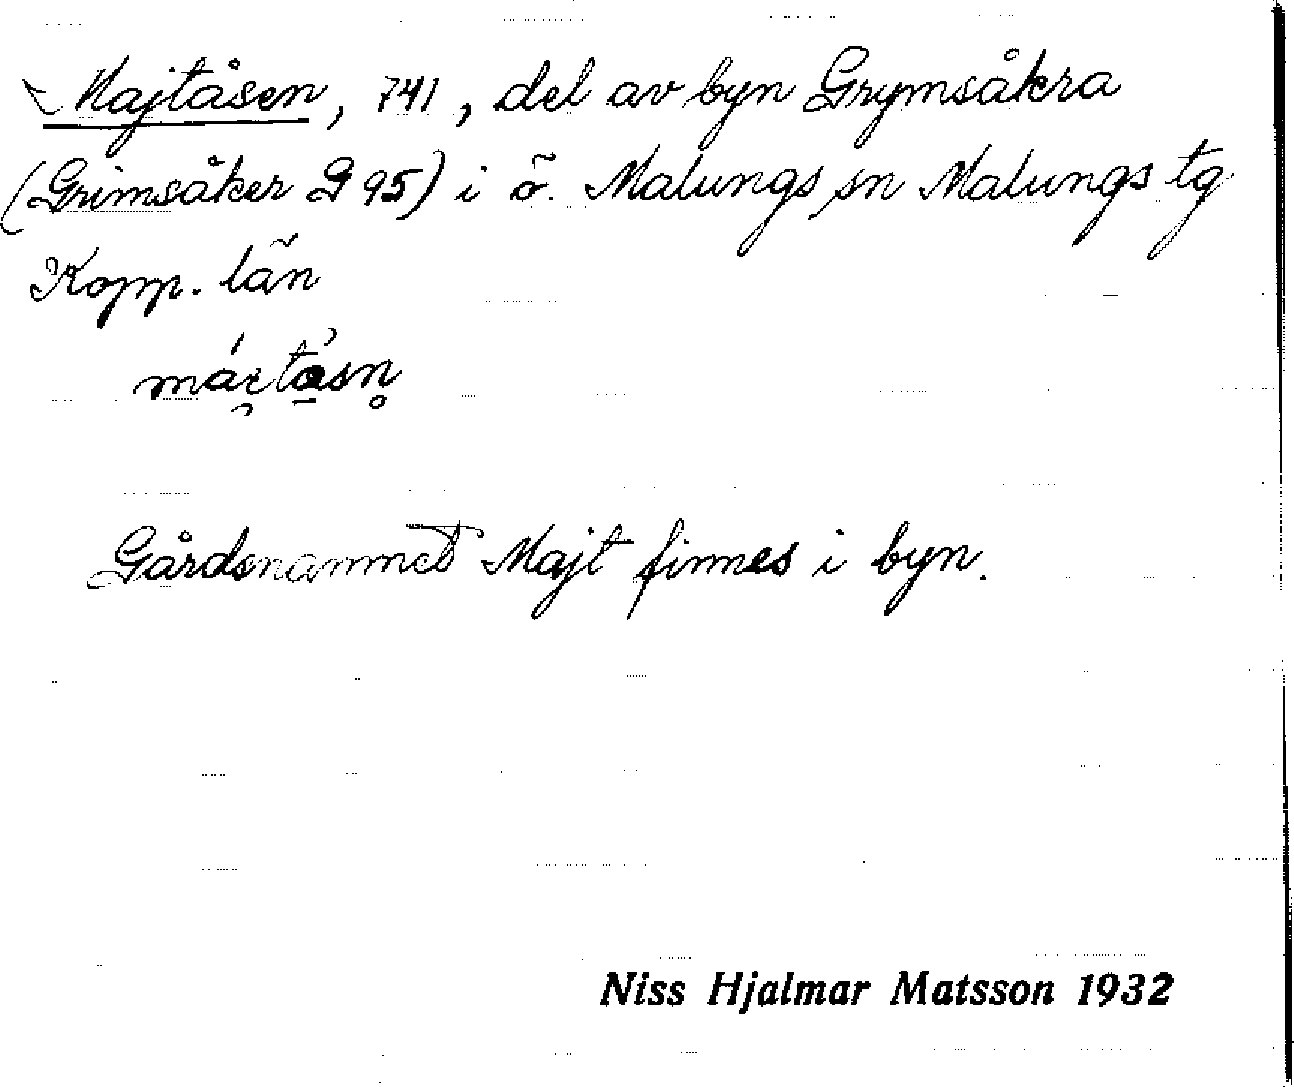 Majtåsen, 741, del av byn Grymsåkra
(Grimsåker G 95) i ö. Malungs sn Malungs tg
Kopp. län
Gårdsnamnet Majt finnes i byn.
Niss Hjalmar Matsson 1932